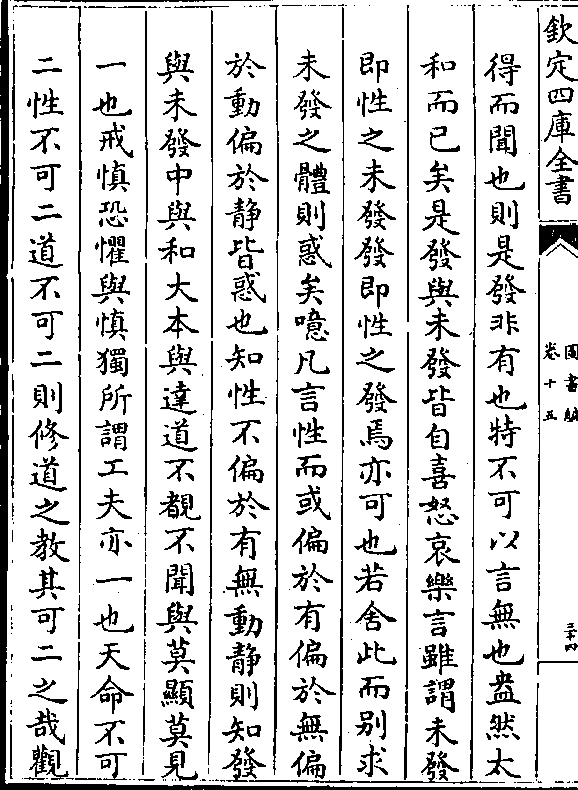 欽定四庫全書
圖書編
卷十五
三十四
得而聞也則是發非有也特不可以言無也盎然太
和而已矣是發與未發皆自喜怒哀樂言雖謂未發
即性之未發發即性之發焉亦可也若舍此而别求
未發之體則惑矣噫凡言性而或偏於有偏於無偏
於動偏於静皆惑也知性不偏於有無動静則知發
與未發中與和大本與達道不覩不聞與莫顯莫見
一也戒慎恐懼與慎獨所謂工夫亦一也天命不可
二性不可二道不可二則修道之教其可二之哉觀